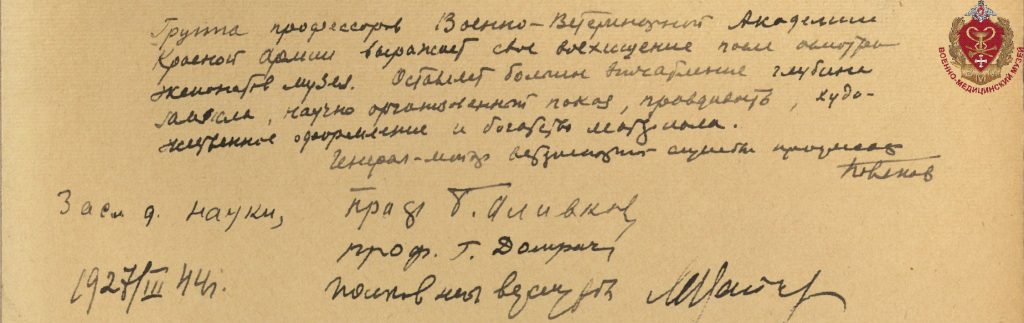 Группа профессоров Военно-Ветеринарной Академии
Красной Армии выражает свое восхищение после осмотра
экспонатов музея. Оставляет большое впечатление глубина
замысла, научно организованный показ, правдивость, худо-
жественное оформление и богатство материала.
Генерал-майор ветеринарной службы профессор
Засл д. науки, Проф
проф. Г. Домрачев
1927/III 44г.
ВОЕННО-МЕДИЦИНСКИЙ МУЗЕЙ